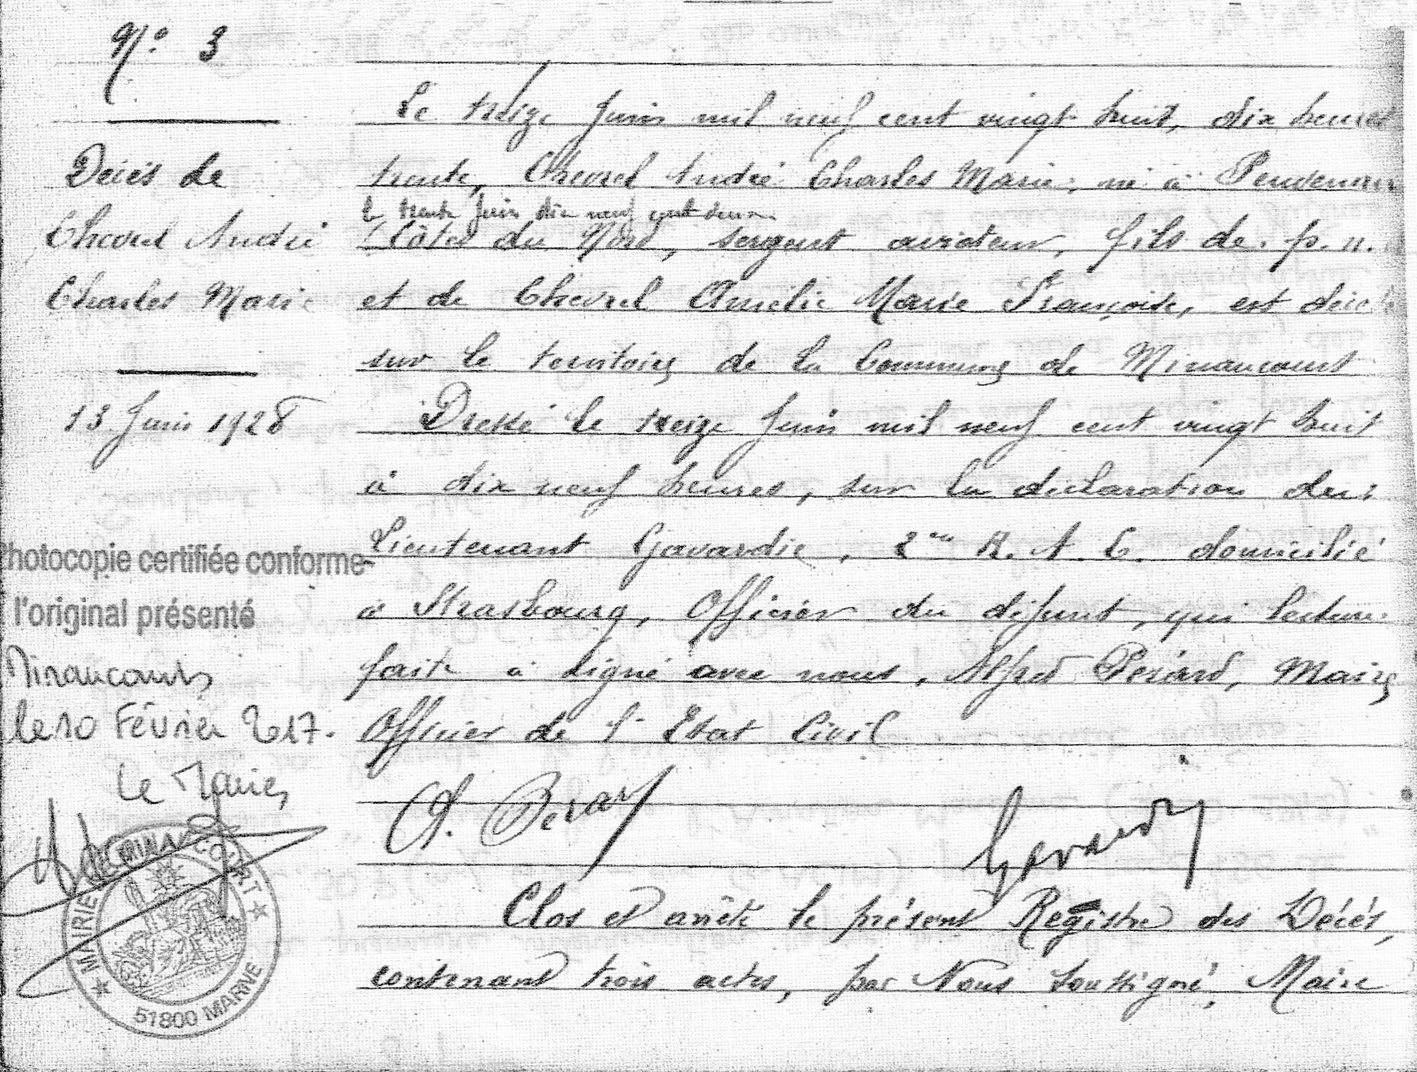 N° 3
Décès de
Chevrel André
Charles Marie
13 Juin 1928
Le treize Juin mil neuf cent vingt huit, dix heures
trente, Chevrel André Charles Marie, né à Penvenan
le trente Juin dix neuf cent
(Côtes du Nord, sergent aviateur, fils de p. n.
et de Chevrel Amélie Marie Françoise, est décédé
sur le territoire de la Commune de Minaucourt
Dressé le treize Juin mil neuf cent vingt huit
à dix neuf heures, sur la déclaration du
Lieutenant Gavardie, 2me R. A. C. domicilié
à Strasbourg, Officier du défunt, qui lecture
faite a signé avec nous, Alfred Perard, Maire
Officier de l'Etat Civil
A. Perard
Gavardie
Clos et arrêté le présent Registre des Décès,
contenant trois actes, par Nous soussigné, Maire
Photocopie certifiée conforme
l'original présenté
Minaucourt
le 10 Février 2017.
Le Maire,
MAIRIE MINAUCOURT
51800 MARNE